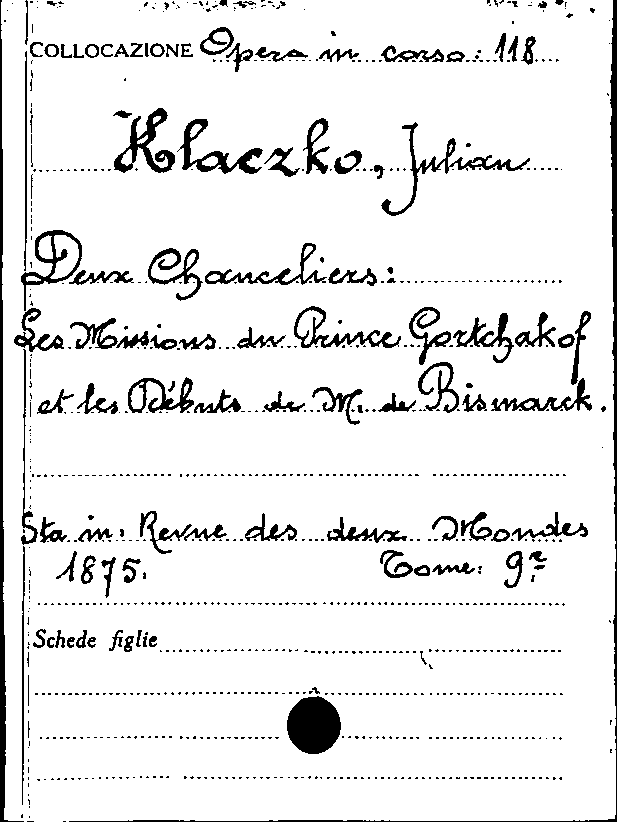 COLLOCAZIONE Opera in corso: 118
Klaczko, Julian
Deux Chanceliers:
Les Missions du Prince Gortchakof
et les Débuts de M. de Bismarck.
Sta in: Revue des deux Mondes
1875. Tome: 9º
Schede figlie